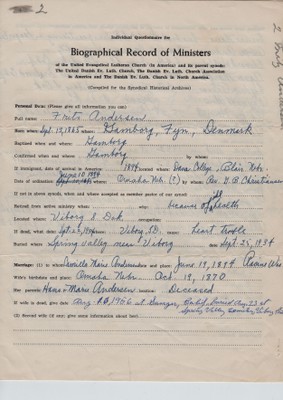 2
Individual Questionnaire for
Biographical Record of Ministers
of the United Evangelical Lutheran Church (in America) and its parent synods:
The United Danish Ev. Luth. Church, The Danish Ev. Luth. Church Association
in America and The Danish Ev. Luth. Church in North America.
(Compiled for the Synodical Historical Archives)
Personal Data: (Please give all information you can)
Full name: Frits Andersen
Born when: Sept. 17, 1865 where: Gamborg, Fyn, Denmark
Baptized when and where: Gamborg
Confirmed when and where: Gamborg by whom:
If immigrated, date of arrival in America: 1894 trained where: Dana College, Blair Nebr.
June 10 1894
Date of ordination: where: Omaha Nebr. (?) by whom: Rev. G. B. Christiansen
If not in above synods, when and where accepted as member pastor of our synod?
Retired from active ministry when: why: because of ill health
Located where: Viborg S. Dak occupation:
If dead, what date: Sept. 1934 where: Viborg, S.D. cause: heart trouble
Buried where: Spring Valley near Viborg date: Sept. 25, 1934
Marriage: (1) to whom: Marie Andersen date and place: June 19, 1894 Racine Wis
Wife's birthdate and place: Omaha Nebr. Oct 19, 1870
Her parents: Hans & Marie Andersen location: Deceased
If wife is dead, give date: Aug. 1956 at
Spring Valley Cemetery Viborg
(2) Second wife (if any; give same information about her)